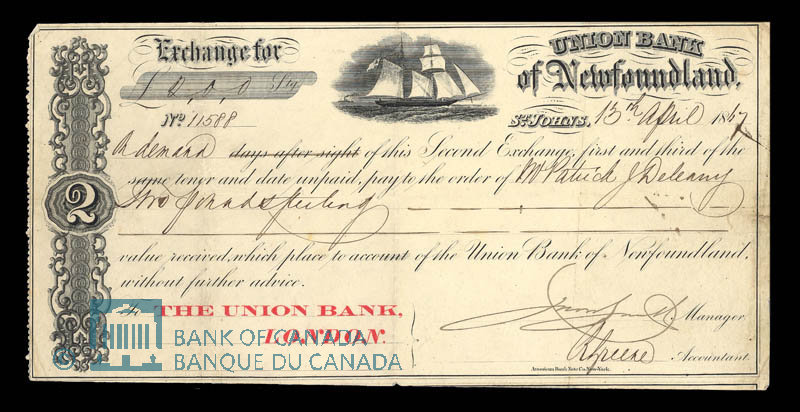 Exchange for
UNION BANK
of Newfoundland.
£2,0,0 Stg
No 11588
St. JOHNS, 13th April 1867
On demand days after sight of this Second Exchange, first and third of the
same tenor and date unpaid, pay to the order of Mr Patrick J Delaney
2
Two pounds Sterling
value received, which place to account of the Union Bank of Newfoundland,
without further advice.
To THE UNION BANK,
LONDON.
Manager.
Accountant.
American Bank Note Co. New-York.
© BANK OF CANADA
BANQUE DU CANADA